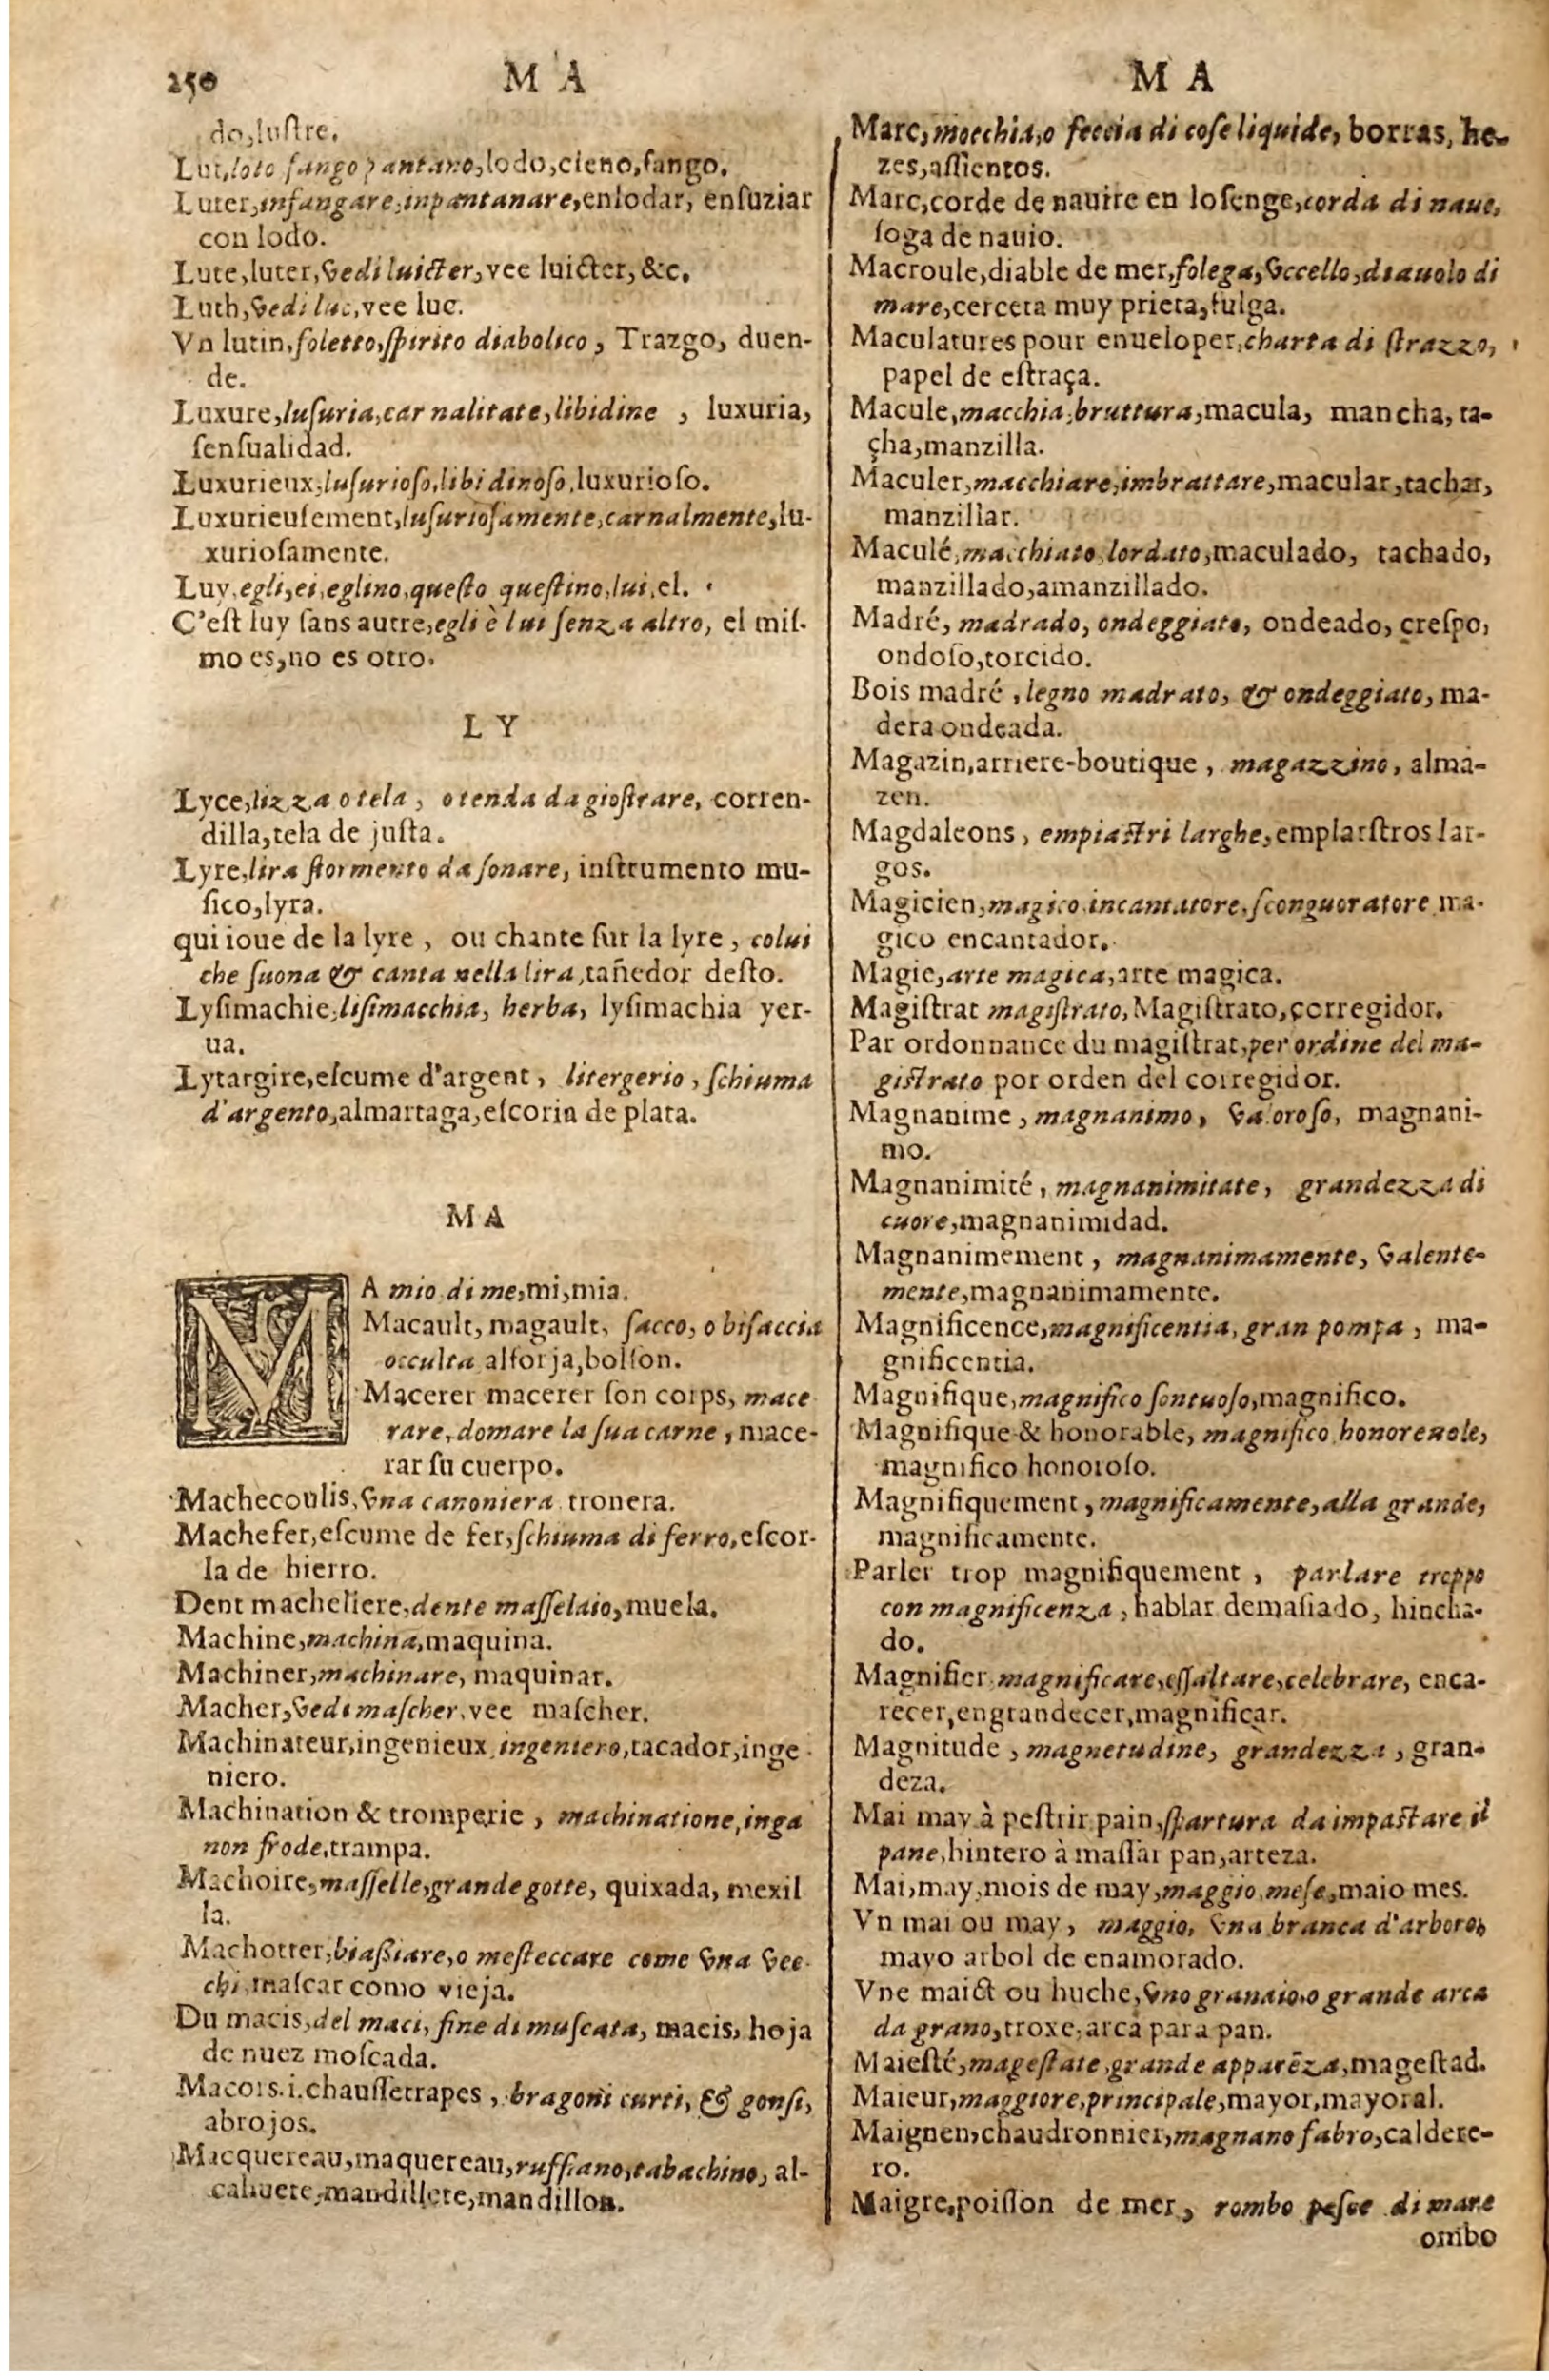 250 M A
do,luſtre.
Lut,loto fango pantano,lodo,cieno,fango.
Luter,infangare,inpantanare,enlodar, enſuziar
con lodo.
Lute,luter,vedi luicter,vee luicter, &c.
Luth,vedi luc,vee luc.
Vn lutin,foletto,ſpirito diabolico, Trazgo, duen-
de.
Luxure,luſuria,carnalitate,libidine , luxuria,
ſenſualidad.
Luxurieux,luſurioſo,libidinoſo,luxurioſo.
Luxurieuſement,luſurioſamente,carnalmente,lu-
xurioſamente.
Luy,egli,ei,eglino,queſto queſtino,lui,el.
C'eſt luy ſans autre,egli è lui ſenza altro, el miſ-
mo es,no es otro.
L Y
Lyce,lizza o tela , o tenda da gioſtrare, corren-
dilla,tela de juſta.
Lyre,lira ſtormento da ſonare, inſtrumento mu-
ſico,lyra.
qui ioue de la lyre , ou chante ſur la lyre , colui
che ſuona & canta nella lira,tañedor deſto.
Lyſimachie,liſimacchia, herba, lyſimachia yer-
ua.
Lytargire,eſcume d'argent , litergerio , ſchiuma
d'argento,almartaga,eſcoria de plata.
M A
MA mio di me,mi,mia.
Macault, magault, ſacco, o biſaccia
occulta alforja,bolſon.
Macerer macerer ſon corps, mace
rare,domare la ſua carne , mace-
rar ſu cuerpo.
Machecoulis,vna canoniera tronera.
Machefer,eſcume de fer,ſchiuma di ferro,eſcor-
la de hierro.
Dent macheliere,dente maſſelaio,muela.
Machine,machina,maquina.
Machiner,machinare, maquinar.
Macher,vedi maſcher,vee maſcher.
Machinateur,ingenieux ingeniero,tacador,inge
niero.
Machination & tromperie , machinatione,inga
non frode,trampa.
Machoire,maſſelle,grande gotte, quixada, mexil
la.
Machotter,biaßiare,o meſteccare come vna vec
chi,maſcar como vieja.
Du macis,del maci, fine di muſcata, macis, hoja
de nuez moſcada.
Macois.i.chauſſetrapes , bragoni curti, & gonfi,
abrojos.
Macquereau,maquereau,ruffiano,tabachino, al-
cahuete,mandillete,mandillon.
M A
Marc,morchia,o feccia di coſe liquide, borras, he-
zes,aſſientos.
Marc,corde de nauire en loſenge,corda di naue,
ſoga de nauio.
Macroule,diable de mer,folega,vccello,diauolo di
mare,cerceta muy prieta,fulga.
Maculatures pour enueloper,charta di ſtrazzo,
papel de eſtraça.
Macule,macchia,bruttura,macula, mancha, ta-
cha,manzilla.
Maculer,macchiare,imbrattare,macular,tachar,
manzillar.
Maculé,macchiato,lordato,maculado, tachado,
manzillado,amanzillado.
Madré, madrado, ondeggiato, ondeado, creſpo,
ondoſo,torcido.
Bois madré , legno madrato, & ondeggiato, ma-
dera ondeada.
Magazin,arriere-boutique , magazzino, alma-
zen.
Magdaleons , empiaſtri larghe,emplarſtros lar-
gos.
Magicien,magico incantatore,ſconguoratore ma-
gico encantador.
Magie,arte magica,arte magica.
Magiſtrat magiſtrato,Magiſtrato,corregidor.
Par ordonnance du magiſtrat,per ordine del ma-
giſtrato por orden del corregidor.
Magnanime , magnanimo, valoroſo, magnani-
mo.
Magnanimité , magnanimitate, grandezza di
cuore,magnanimidad.
Magnanimement , magnanimamente, valente-
mente,magnanimamente.
Magnificence,magnificentia, gran pompa , ma-
gnificentia.
Magnifique,magnifico ſontuoſo,magnifico.
Magnifique & honorable, magnifico honoreuole,
magnifico honoroſo.
Magnifiquement , magnificamente,alla grande,
magnificamente.
Parler trop magnifiquement , parlare troppo
con magnificenza , hablar demaſiado, hincha-
do.
Magnifier magnificare,eſſaltare,celebrare, enca-
recer,engrandecer,magnificar.
Magnitude , magnetudine, grandezza , gran-
deza.
Mai may à peſtrir pain,ſpartura da impaſtare il
pane,hintero à maſſar pan,arteza.
Mai,may,mois de may,maggio,meſe,maio mes.
Vn mai ou may , maggio, vna branca d'arboro,
mayo arbol de enamorado.
Vne maict ou huche,vno granaio,o grande arca
da grano,troxe,arca para pan.
Maieſté,mageſtate,grande apparēza,mageſtad.
Maieur,maggiore,principale,mayor,mayoral.
Maignen,chaudronnier,magnano fabro,caldere-
ro.
Maigre,poiſſon de mer, rombo peſce di mare
ombo